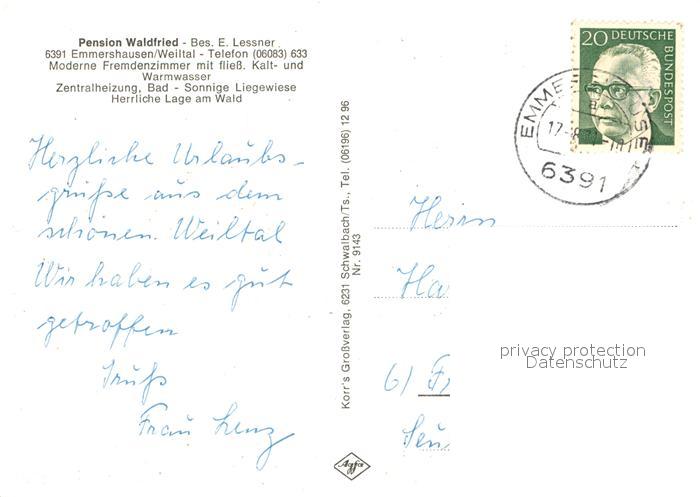 Pension Waldfried - Bes. E. Lessner
6391 Emmershausen/Weiltal - Telefon (06083) 633
Moderne Fremdenzimmer mit fließ. Kalt- und
Warmwasser
Zentralheizung, Bad - Sonnige Liegewiese
Herrliche Lage am Wald
Herzliche Urlaubs-
grüße aus dem
schönen Weiltal
Wir haben es gut
getroffen
Gruß
Frau Lenz
Korr's Großverlag, 6231 Schwalbach/Ts., Tel. (06196) 12 96
Nr. 9143
Agfa
20 DEUTSCHE
BUNDESPOST
6391
Herrn
Ha
6) F
privacy protection
Datenschutz